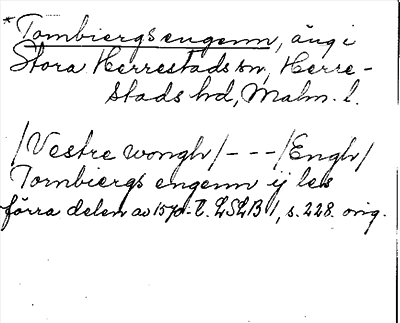 *Tornbiergsengenn, äng i
Stora Herrestads sn, Herre-
stads hd, Malm. l.
/Vestre wongh/ - - - /Engh/
Tornbiergs engenn ij les
förra delen av 1570-t. LSLB 1, s. 228. orig.